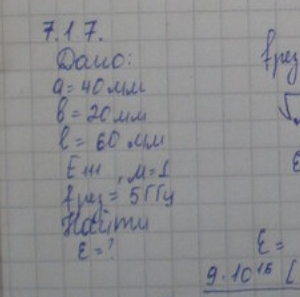 7.17.
Дано:
a = 40 мм
b = 20 мм
l = 60 мм
E₁₁₁, м = 1
fрез = 5 ГГц
Найти
ε = ?
fрез
ε =
9 · 10¹⁶ (